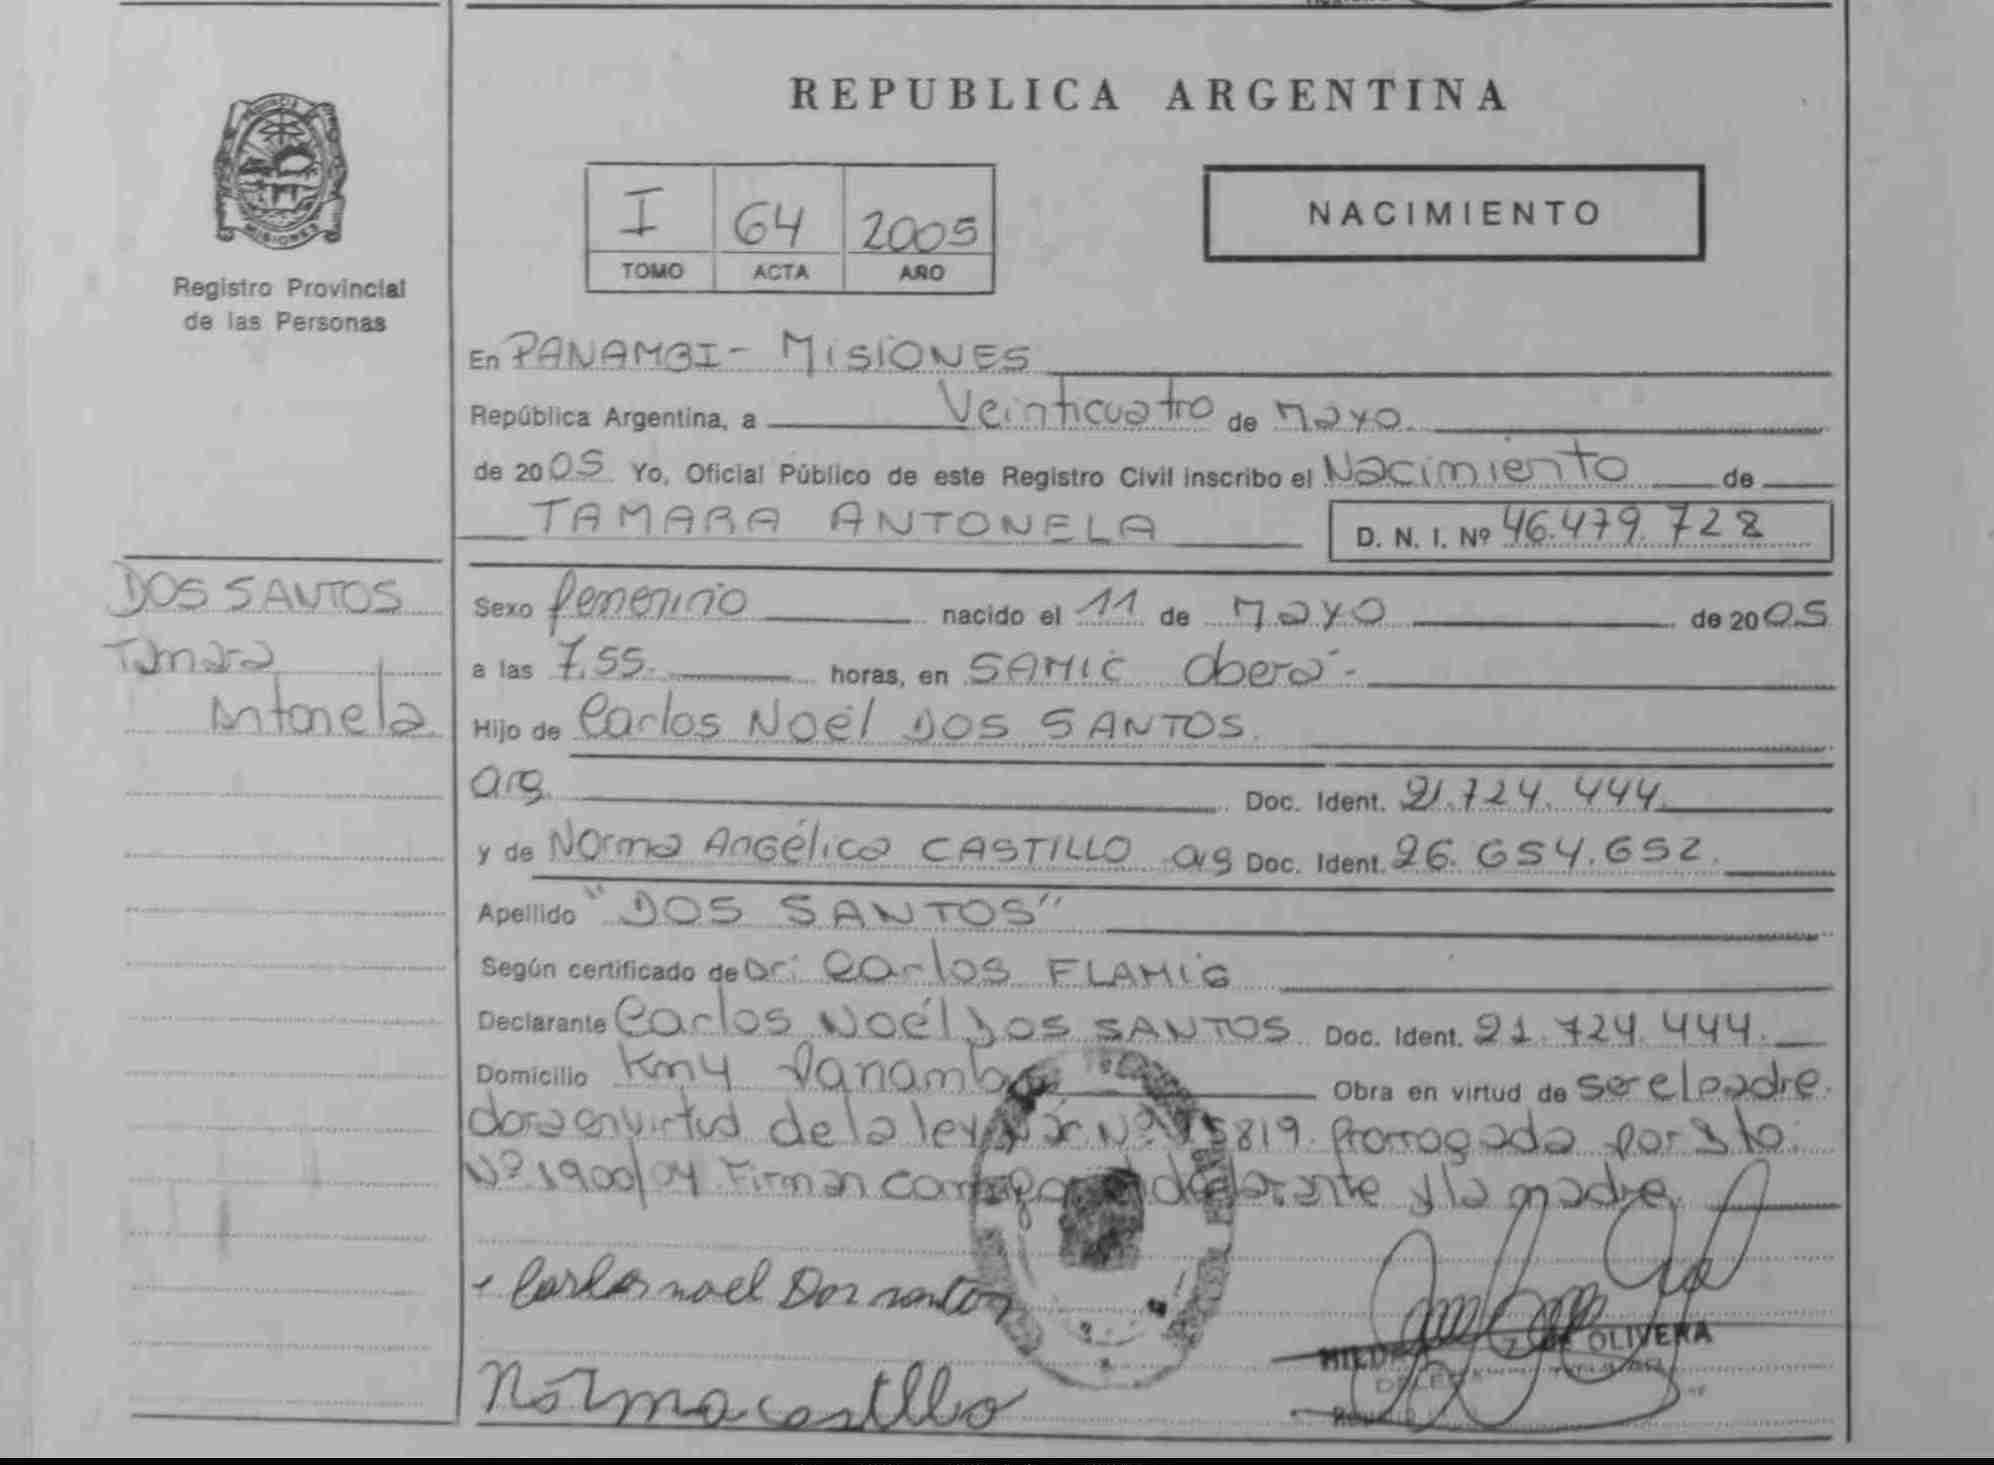 REPUBLICA ARGENTINA
PROVINCIA
MISIONES
Registro Provincial
de las Personas
I 64 2005
TOMO ACTA AÑO
NACIMIENTO
En PANAMBI - MISIONES
República Argentina, a Veinticuatro de Mayo.
de 2005 Yo, Oficial Público de este Registro Civil inscribo el Nacimiento de
TAMARA ANTONELA D. N. I. Nº 46.479.728
DOS SANTOS
Tamara
Antonela
Sexo femenino nacido el 11 de Mayo de 2005
a las 7.55. horas, en SAMIC Oberá.-
Hijo de Carlos Noél DOS SANTOS.
arg. Doc. Ident. 21.724.444
y de Norma Angélica CASTILLO arg Doc. Ident. 26.654.652.
Apellido "DOS SANTOS"
Según certificado de Dr: Carlos FLAMIG
Declarante Carlos Noél DOS SANTOS Doc. Ident. 21.724.444.
Domicilio Km4 Panambi Obra en virtud de ser el padre.
virtud de la ley Nº 819. Prorrogada por Dto.
Nº 1900/04 Firman declarante y la madre.
Carlos noel Dos santos
Norma castillo
DE OLIVERA